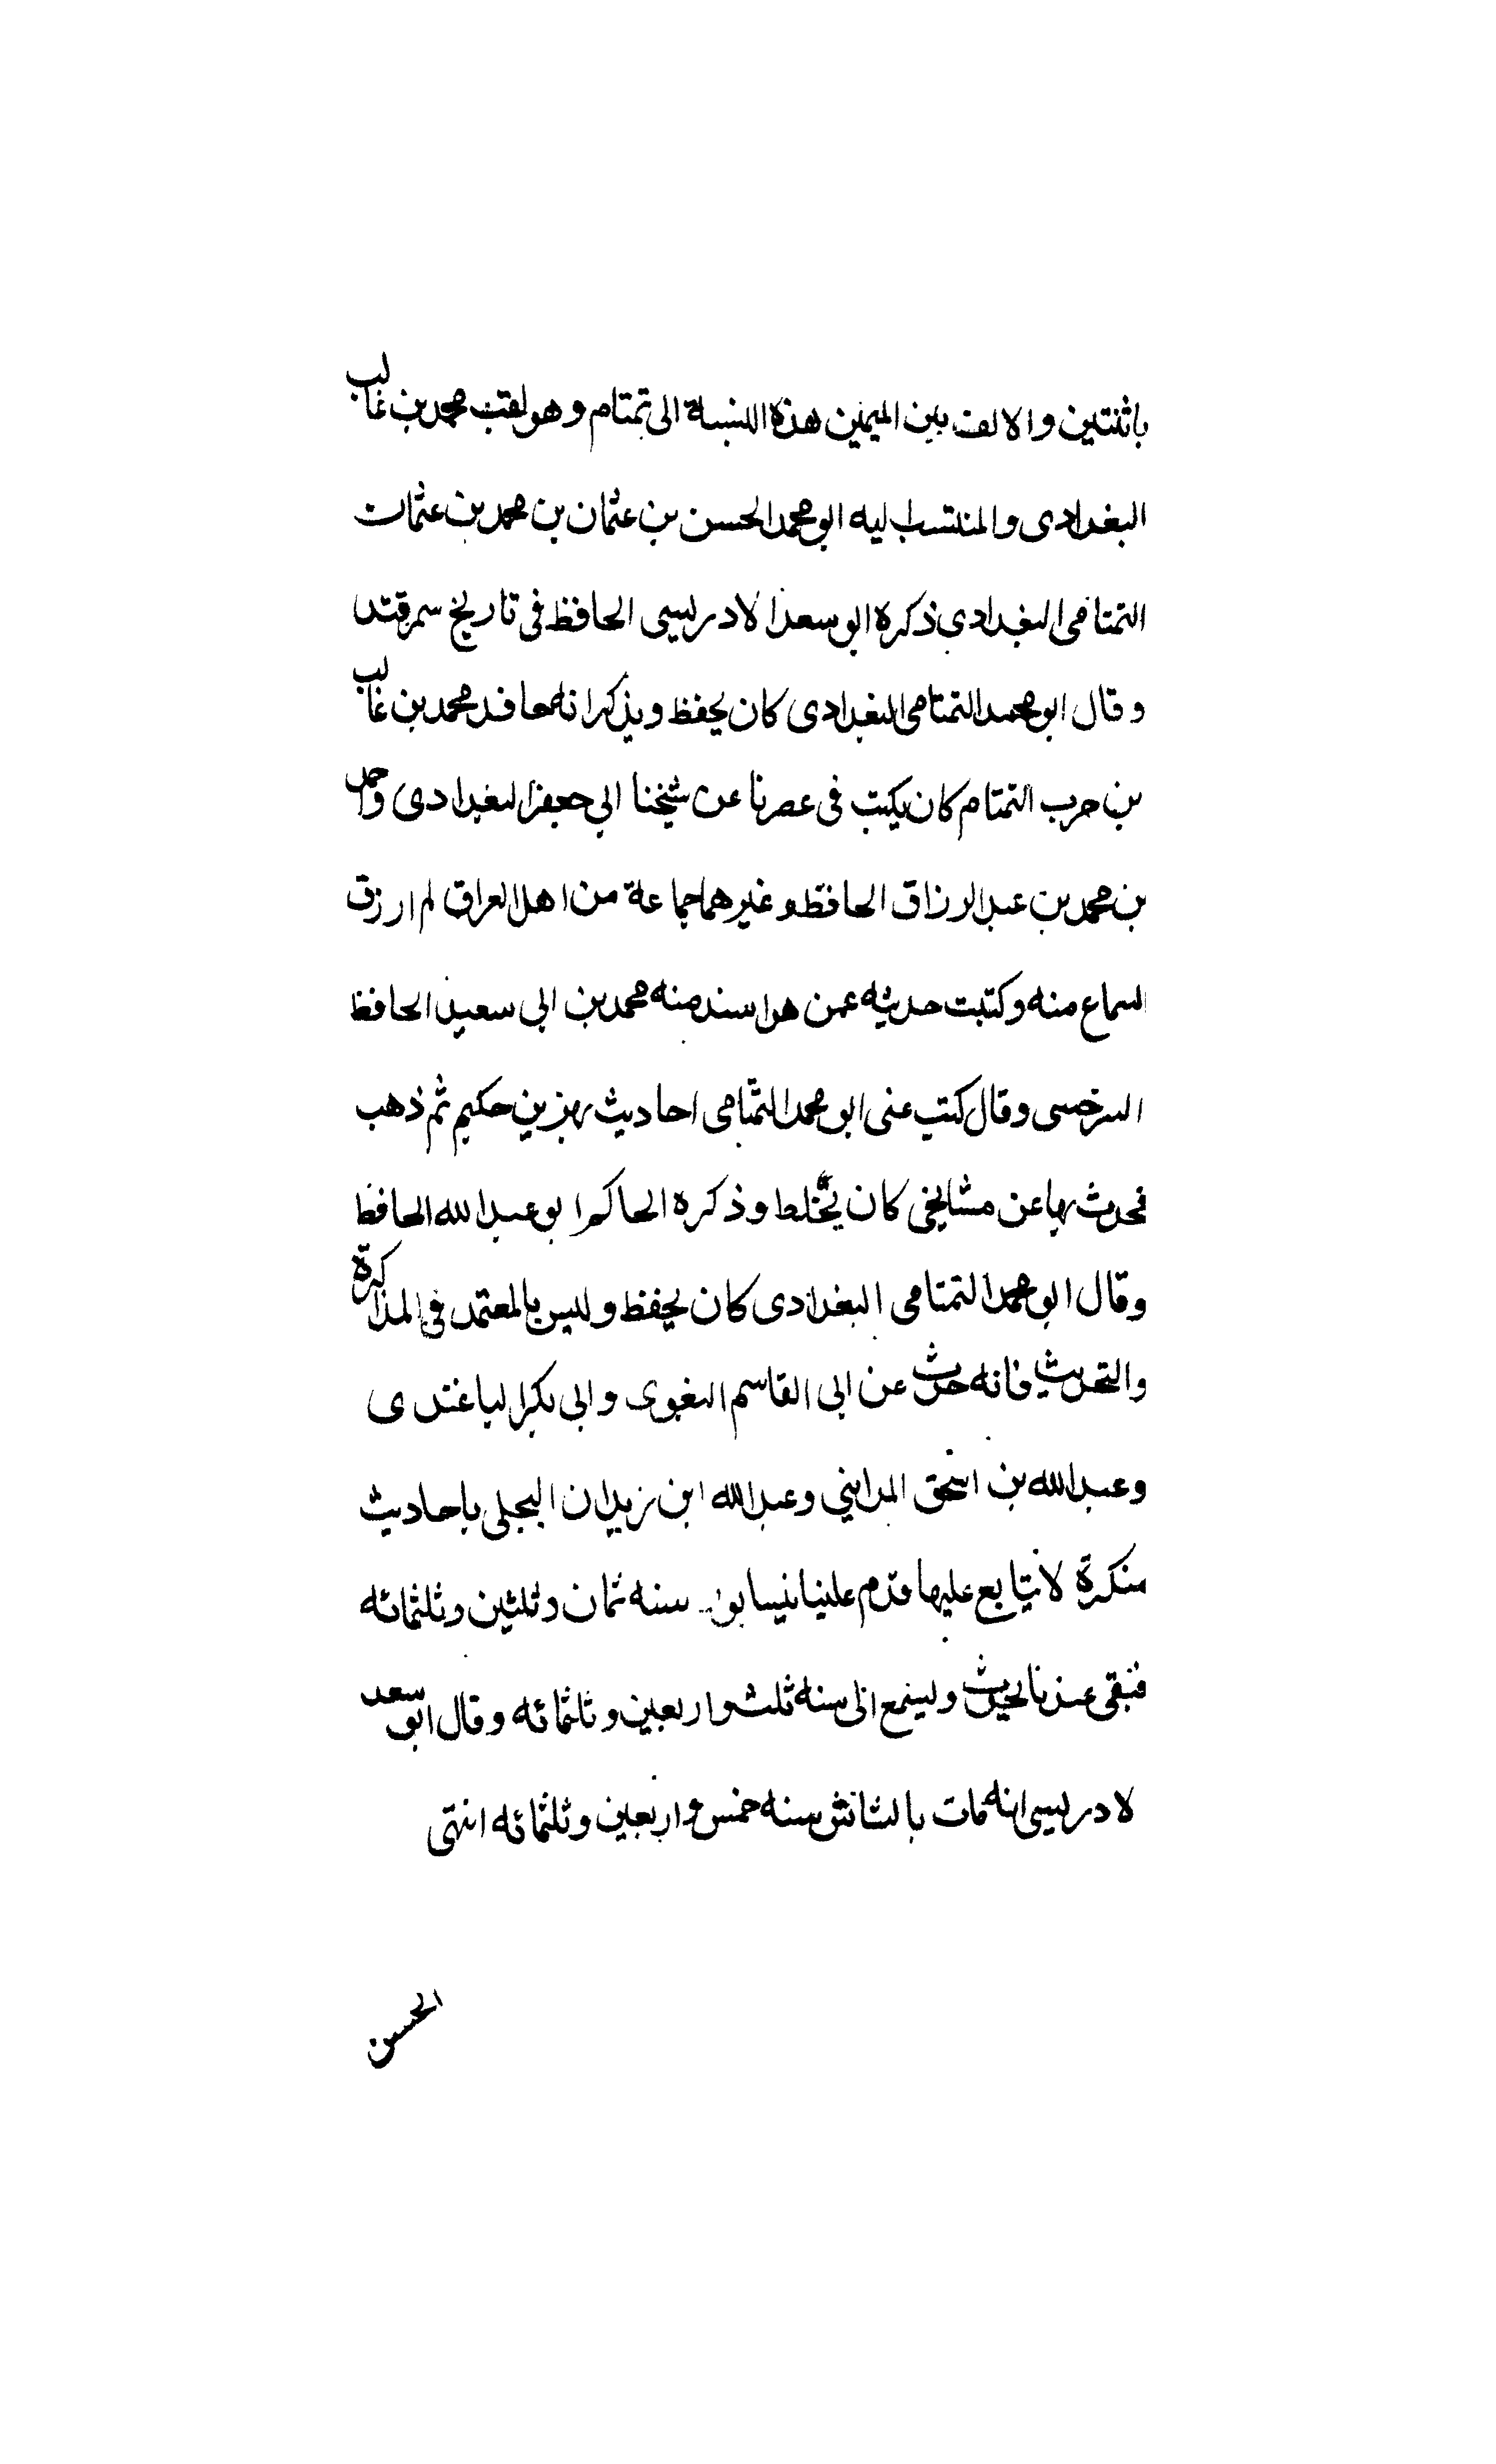 باثنتين والالف بين الميمين هذه النسبة الى تمتام وهو لقب محمد بن غالب
البغدادى والمنتسب اليه ابو محمد الحسن بن عثمان بن محمد بن عثمان
التمتامى البغدادى ذكره ابو سعد الادريسى الحافظ فى تاريخ سمرقند
وقال ابو محمد التمتامى البغدادى كان يحفظ ويذكر انه حافد محمد بن غالب
بن حرب التمتام كان يكتب فى عصرنا عن شيخنا ابي جعفر البغدادى واحمد
بن محمد بن عبد الرزاق الحافظ وغيرهما جماعة من اهل العراق لم ارزق
السماع منه وكتبت حديثه عمن هو اسند منه محمد بن ابي سعيد الحافظ
السرخسى وقال كتب عنى ابو محمد التمتامى احاديث بهز بن حكيم ثم ذهب
فحدث بها عن مشايخي كان يخلط وذكره الحاكم ابو عبد الله الحافظ
وقال ابو محمد التمتامى البغدادى كان يحفظ وليس بالمعتمد في المذاكرة
والتحديث فانه حدث عن ابى القاسم البغوى وابى بكر الباغندى
وعبد الله بن اسحق المدايني وعبد الله ابن زيدان البجلى باحاديث
منكرة لا يتابع عليها قدم علينا نيسابور سنه ثمان وثلثين وثلثمائه
فبقى عندنا يحدث ويسمع الى سنه ثلث واربعين وثلثمائه وقال ابو سعد
لادريسى انه مات بالشاش سنه خمس واربعين وثلثمائه انتهى
الحسن